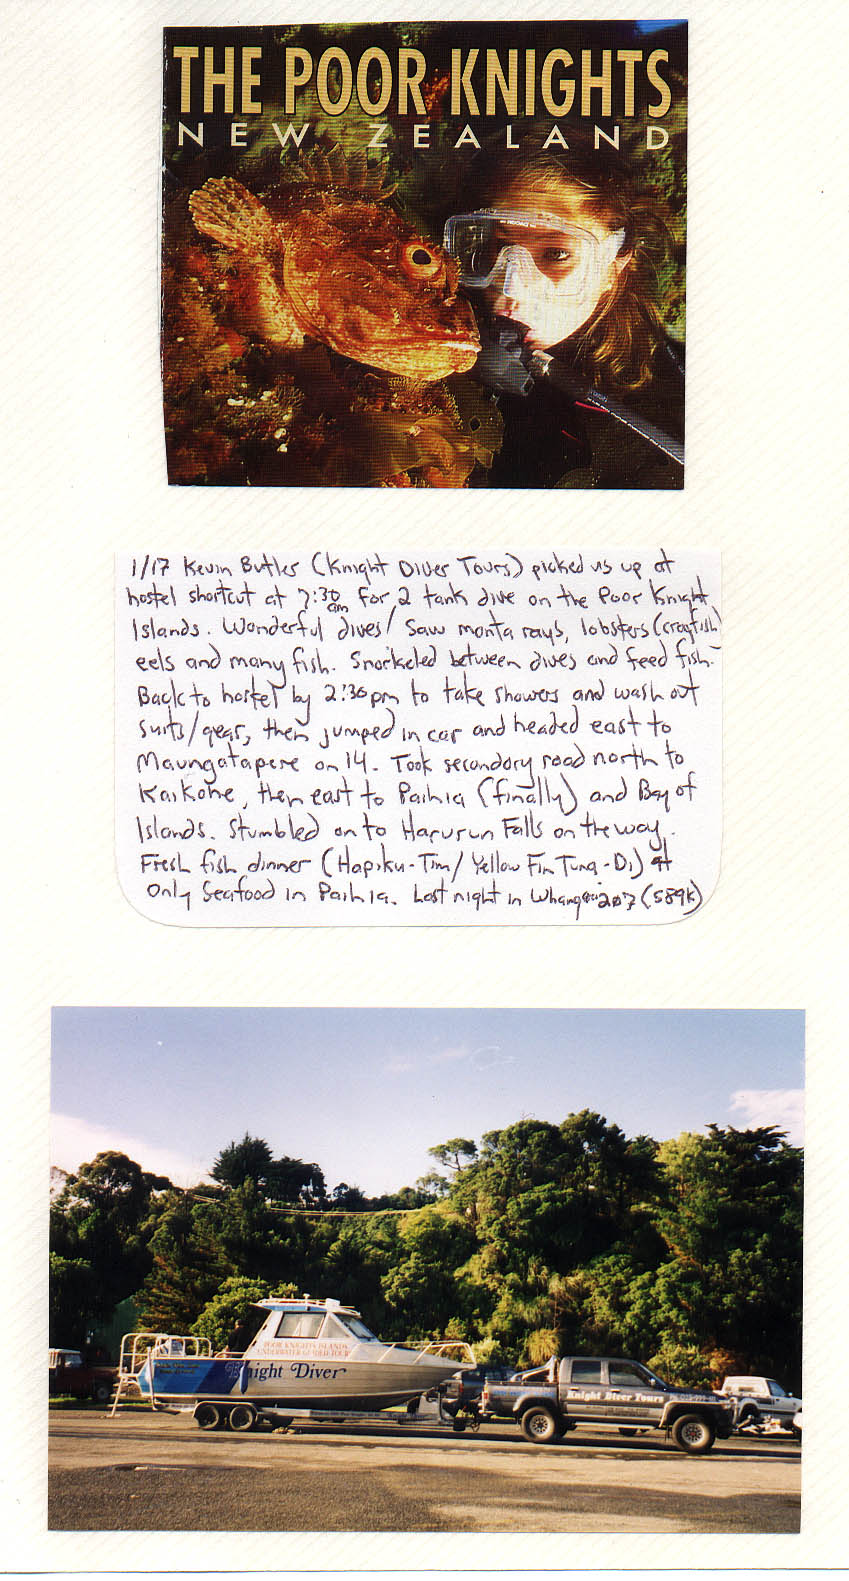 THE POOR KNIGHTS
NEW ZEALAND
1/17 Kevin Butler (Knight Diver Tours) picked us up at
hostel shortcut at 7:30 am for 2 tank dive on the Poor Knight
Islands. Wonderful dives! Saw manta rays, lobsters (crayfish)
eels and many fish. Snorkeled between dives and feed fish.
Back to hostel by 2:30pm to take showers and wash out
suits/gear, then jumped in car and headed east to
Maungatapere on 14. Took secondary road north to
Kaikohe, then east to Paihia (finally) and Bay of
Islands. Stumbled on to Harurun Falls on the way.
Fresh fish dinner (Hapiku-Tim/Yellow Fin Tuna-Di) at
Only Seafood in Paihia. Last night in Whangerei 207 (589k)
POOR KNIGHTS ISLANDS
UNDERWATER GUIDED TOUR
Knight Diver
Knight Diver Tours